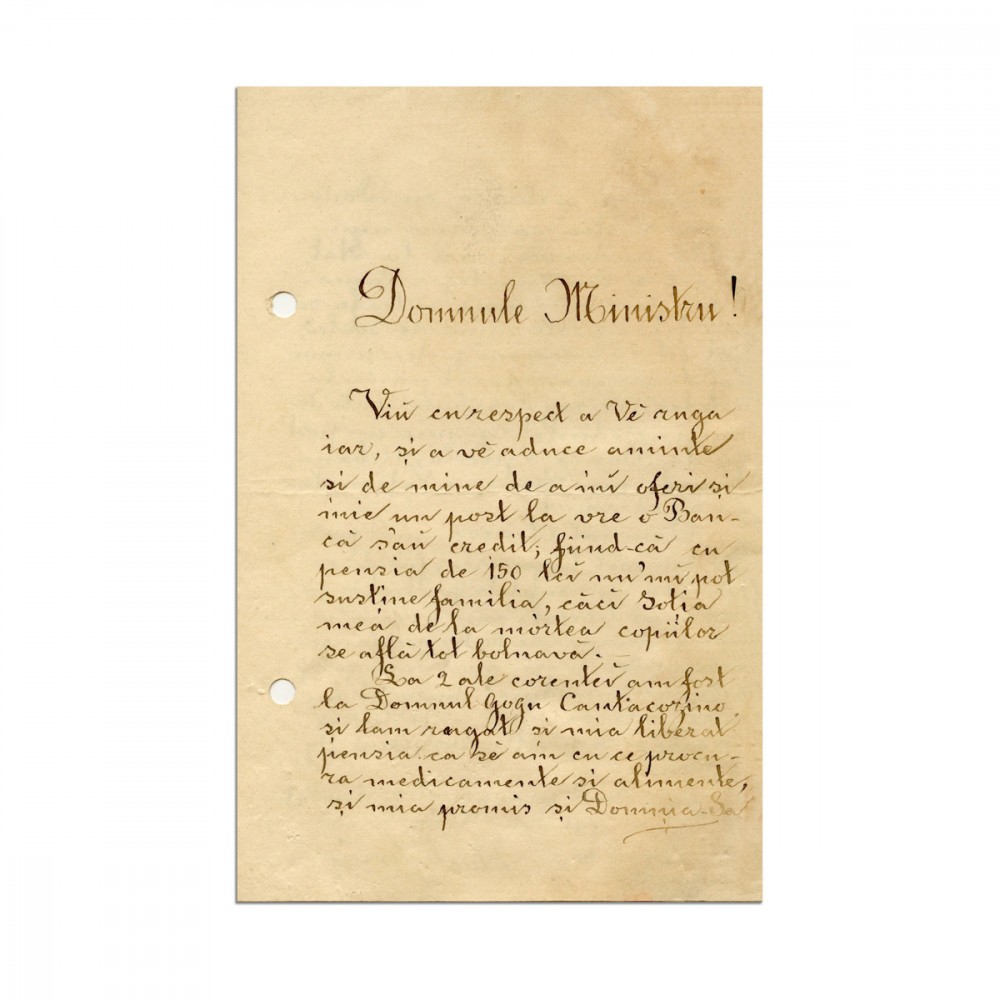 Domnule Ministru!
Viŭ cu respect a Vĕ ruga
iar, și a vĕ aduce aminte
si de mine de a'mĭ oferi și
mie un post la vre o Ban-
că s'aŭ credit; fiind-că cu
pensia de 150 lei nu'mĭ pot
susține familia, căci Soția
mea de la mórtea copiilor
se află tot bolnavă.
La 2 ale corenteĭ am fost
la Domnul Gogu Cantacozino
si lam rugat si mia liberat
pensia ca sĕ am cu ce procu-
ra medicamente si alimente,
și mia promis și Domnia-Sa